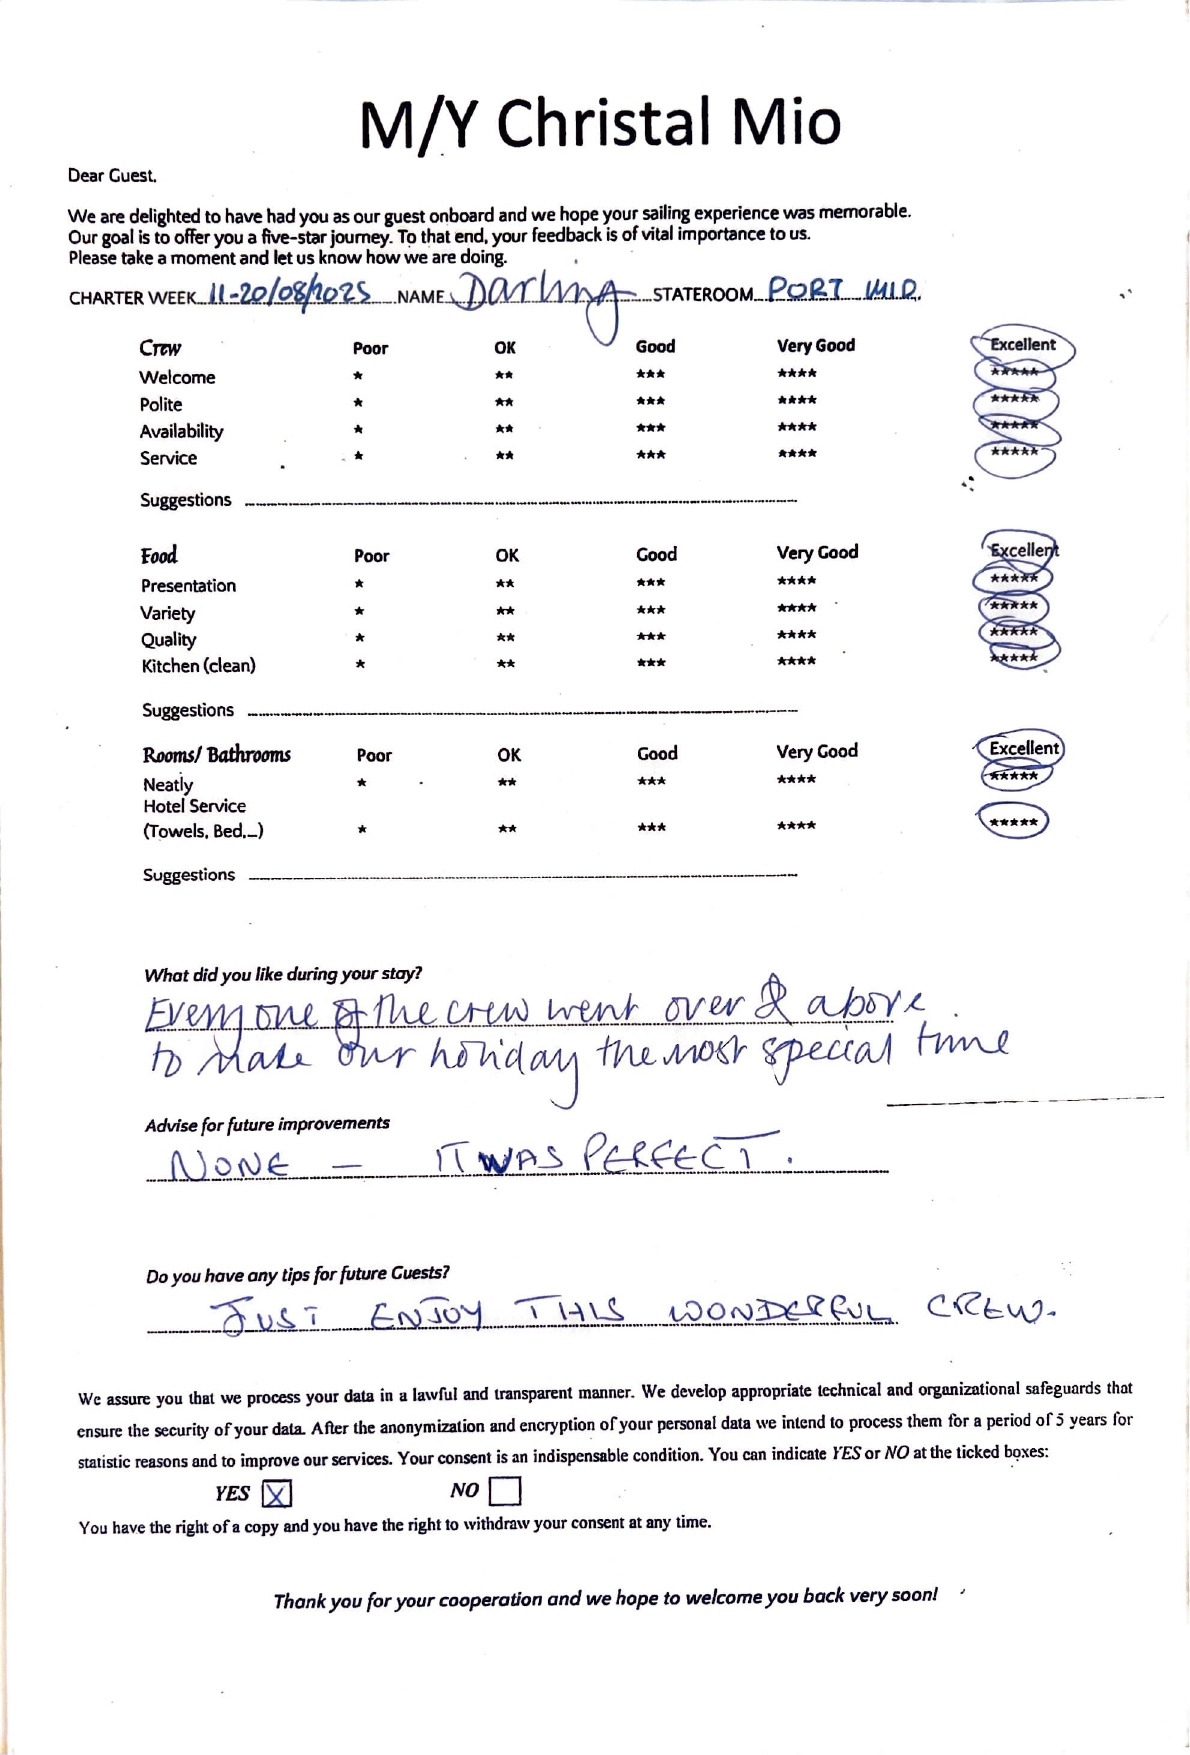 M/Y Christal Mio
Dear Guest,
We are delighted to have had you as our guest onboard and we hope your sailing experience was memorable.
Our goal is to offer you a five-star journey. To that end, your feedback is of vital importance to us.
Please take a moment and let us know how we are doing.
CHARTER WEEK 11-20/08/2025 NAME Darling STATEROOM PORT MID.
Crew Poor OK Good Very Good Excellent
Welcome * ** *** **** *****
Polite * ** *** **** *****
Availability * ** *** **** *****
Service * ** *** **** *****
Suggestions
Food Poor OK Good Very Good Excellent
Presentation * ** *** **** *****
Variety * ** *** **** *****
Quality * ** *** **** *****
Kitchen (clean) * ** *** **** *****
Suggestions
Rooms/ Bathrooms Poor OK Good Very Good Excellent
Neatly * ** *** **** *****
Hotel Service
(Towels, Bed,...) * ** *** **** *****
Suggestions
What did you like during your stay?
Everyone of the crew went over & above
to make our holiday the most special time
Advise for future improvements
NONE - IT WAS PERFECT.
Do you have any tips for future Guests?
JUST ENJOY THIS WONDERFUL CREW.
We assure you that we process your data in a lawful and transparent manner. We develop appropriate technical and organizational safeguards that
ensure the security of your data. After the anonymization and encryption of your personal data we intend to process them for a period of 5 years for
statistic reasons and to improve our services. Your consent is an indispensable condition. You can indicate YES or NO at the ticked boxes:
YES X NO
You have the right of a copy and you have the right to withdraw your consent at any time.
Thank you for your cooperation and we hope to welcome you back very soon!